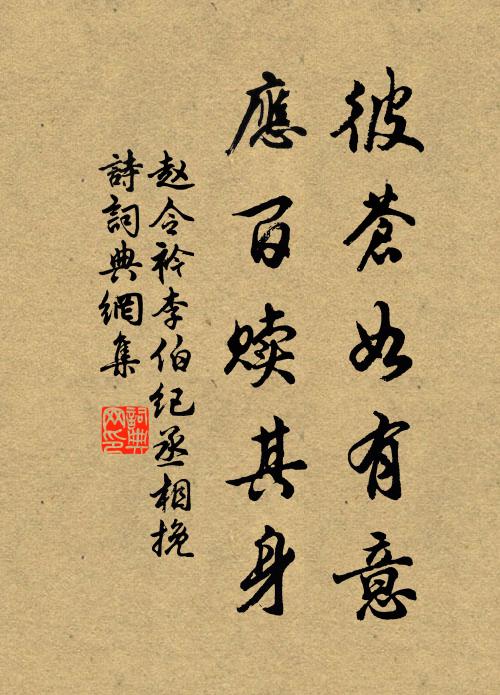 彼蒼如有意
應百赎其身
赵令衿李伯纪丞相挽
詩詞典網集
詞典
网印